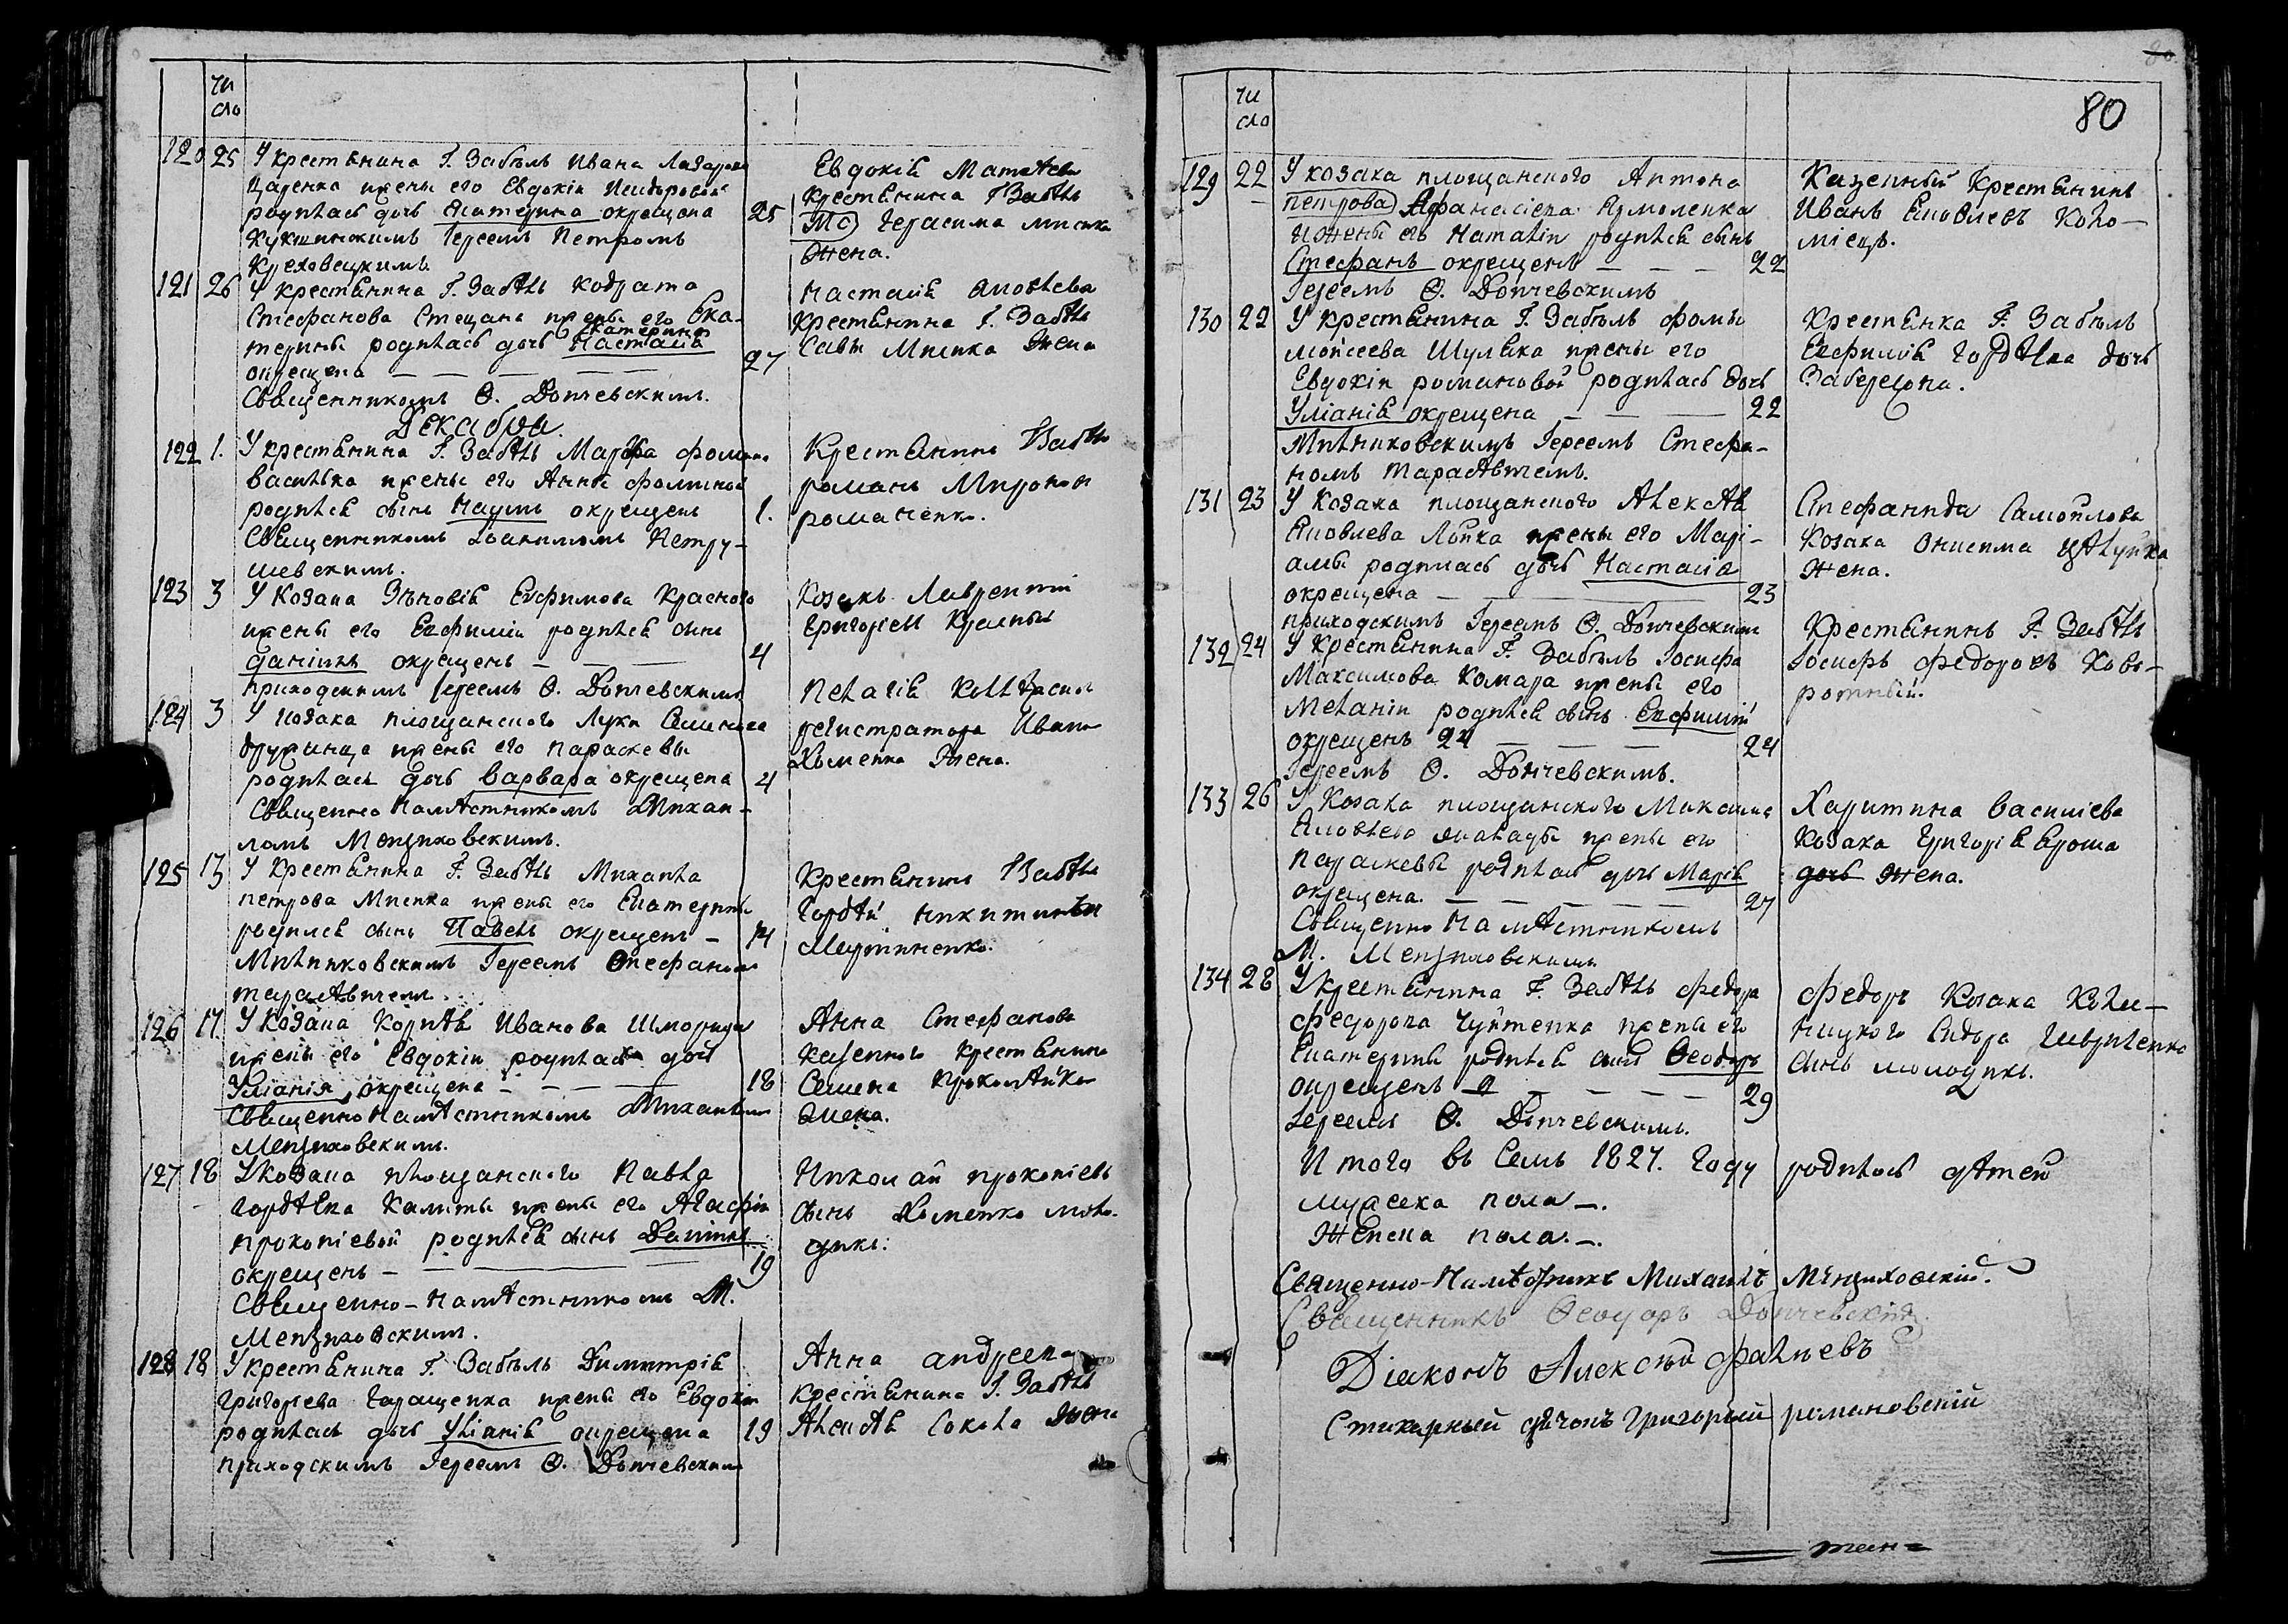 чи
сло
120 25 У крестянина Г. Забѣлъ Ивана Лазарова
Царенка жены его Евдокіи Исидоровой
родилась дочь Екатерина окрещена 25
Кукшинскимъ Іереемъ Петромъ
Креховецкимъ.
Евдокія Матвѣева
крестянина Г Забѣл
Герасима
жена.
121 26 У крестянина Г. Забѣлъ Кодрата
Стефанова Стецана жены его Ека-
терины родилась дочь Екатерина Настасія
окрещена 27
Священникомъ Ѳ. Допчевскимъ.
Настасія Яковлева
крестянина Г. Забѣл
Савы жена
Декабря.
122 1. У крестянина Г. Забѣлъ Марка
василька жены его Анны фоминой
родился сынъ Наумъ окрещенъ 1.
Священникомъ Іоанномъ Петру-
шевскимъ.
Крестянинъ Г Забѣл
романъ Мироновъ
романенко.
123 3 У Козака Зѣновія Евфимова Красного
жены его Евфиміи родился сынъ
даніилъ окрещенъ 4
приходскимъ Іереемъ Ѳ. Допчевскимъ
Козакъ Лаврентій
Григоріевъ Красный
124 3 У Козака площанского Луки Семенова
дружинца жены его параскевы
родилась дочь варвара окрещена 4
Священно намѣстникомъ Михаи-
ломъ Менциховскимъ.
Пелагія
регистратора Ивана
Хоменка жена.
125 13 У Крестянина Г. Забѣлъ Михаила
петрова Мисика жены его Екатерины
родился сынъ Павелъ окрещенъ 14
Мильниковскимъ Іереемъ Стефаномъ
тарасѣвичемъ.
Крестянинъ Г Забѣл
Гордѣй никитинъ
Мартиненко.
126 17. У козака Корнѣя Иванова
жены его Евдокіи родилась дочь
Уліанія окрещена 18
Священно намѣстникомъ Михаиломъ
Менциховскимъ.
Анна Стефанова
казенного крестянина
Семена
жена.
127 18 У козака площанского Павла
гордѣева Калиты жены его Агафіи
прокопіевой родился сынъ Даніилъ
окрещенъ 19
Священно-намѣстникомъ М.
Менциховскимъ.
Николай прокопіевъ
сынъ Хоменко моло-
дикъ.
128 18 У крестянина Г. Забѣлъ Димитрія
григорьева Геращенка жены его Евдокіи
родилась дочь Уліанія окрещена 19
приходскимъ Іереемъ Ѳ. Допчевскимъ
Анна андреева
крестянина Г. Забѣл
Алексѣя Сокола жена
80
чи
сло
129 22 У козака площанского Антона
петрова Афанасіева Ярмоленка
и жены его Наталіи родился сынъ
Стефанъ окрещенъ 22
Іереемъ Ѳ. Допчевскимъ
Казенный Крестянинъ
Иванъ Яковлевъ Коло-
міецъ.
130 22 У крестянина Г. Забѣлъ фомы
мойсеева Шуляка жены его
Евдокіи романовой родилась дочь
Уліанія окрещена 22
Мильниковскимъ Іереемъ Стефа-
номъ тарасѣвичемъ.
Крестянка Г. Забѣлъ
Евфимія гордѣева дочь
131 23 У Козака площанского Алексѣя
Яковлева Лопка жены его Марі-
амы родилась дочь Настасія
окрещена 23
приходскимъ Іереемъ Ѳ. Допчевскимъ
Стефанида Самойлова
Козака Онисима
жена.
132 24 У Крестянина Г. Забѣлъ Іосифа
Максимова Комара жены его
Меланіи родился сынъ Евфимій
окрещенъ 24 24
Іереемъ Ѳ. Допчевскимъ.
Крестянинъ Г. Забѣл
Іосифъ федоровъ Ково-
ротный.
133 26 У Козака площанского Максима
Яковлева жены его
параскевы родилась дочь Марія
окрещена. 27
Священно намѣстникомъ
М. Менциховскимъ
Харитина василиева
Козака Григорія Яроша
дочь жена.
134 28 У крестянина Г. Забѣлъ федора
федорова жены его
Екатерины родился сынъ Ѳеодоръ
окрещенъ 29
Іереемъ Ѳ. Допчевскимъ.
федоръ Козака Коле-
ницкого Сидора Гаврыленка
сынъ молодикъ.
Итого въ семъ 1827. году родилось дѣтей
мужеска пола —.
женска пола. —.
Священно-Намѣстникъ Михаилъ Менциховскій.
Священникъ Ѳеодоръ Допчевскій.
Діаконъ Алексѣй
Стихарный дячокъ Григорый романовскій